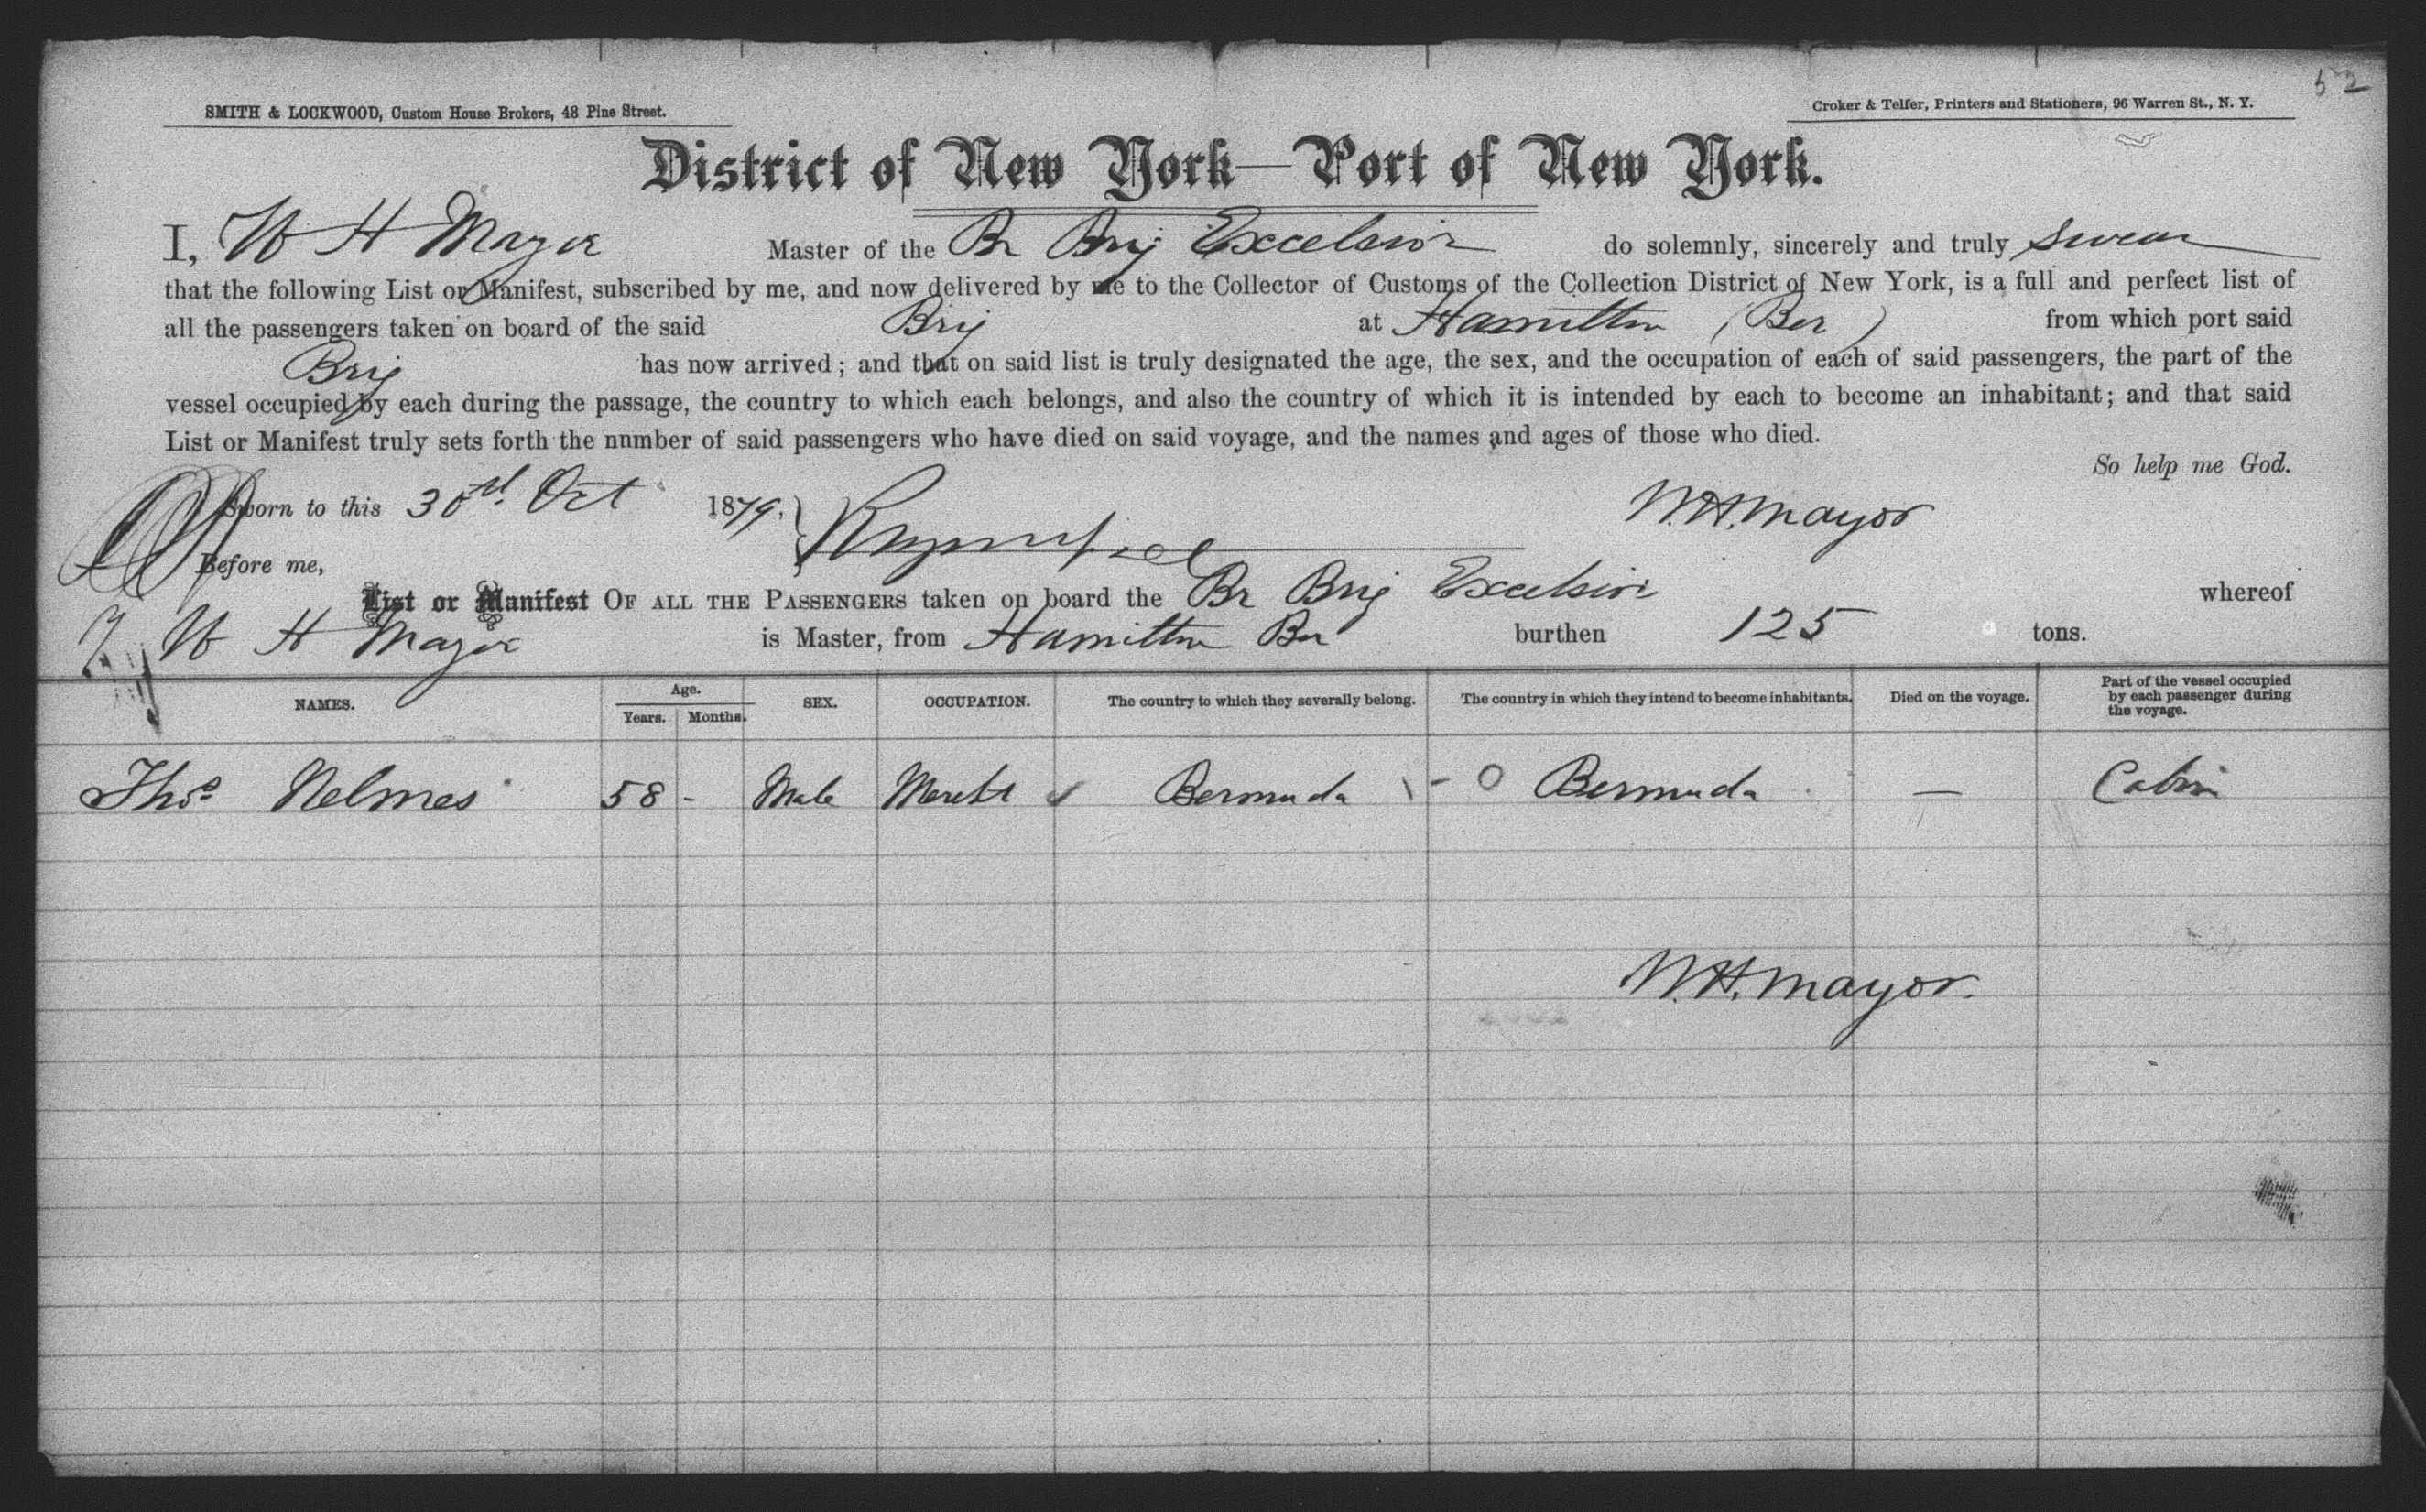 52
SMITH & LOCKWOOD, Custom House Brokers, 48 Pine Street.
Croker & Telfer, Printers and Stationers, 96 Warren St., N. Y.
District of New York—Port of New York.
I, W H Mayor Master of the Br Brig Excelsior do solemnly, sincerely and truly swear
that the following List or Manifest, subscribed by me, and now delivered by me to the Collector of Customs of the Collection District of New York, is a full and perfect list of
all the passengers taken on board of the said Brig at Hamilton (Ber) from which port said
Brig has now arrived; and that on said list is truly designated the age, the sex, and the occupation of each of said passengers, the part of the
vessel occupied by each during the passage, the country to which each belongs, and also the country of which it is intended by each to become an inhabitant; and that said
List or Manifest truly sets forth the nnmber of said passengers who have died on said voyage, and the names and ages of those who died.
So help me God.
Sworn to this 30d. Oct 1879. W. H. Mayor
Before me,
List or Manifest OF ALL THE PASSENGERS taken on board the Br Brig Excelsior whereof
W H Mayor is Master, from Hamilton Ber burthen 125 tons.
NAMES. Age. Years. Months. SEX. OCCUPATION. The country to which they severally belong. The country in which they intend to become inhabitants. Died on the voyage. Part of the vessel occupied by each passenger during the voyage.
Thos Nelmes 58 - Male Mercht Bermuda \ - O Bermuda — Cabin
W. H. Mayor.